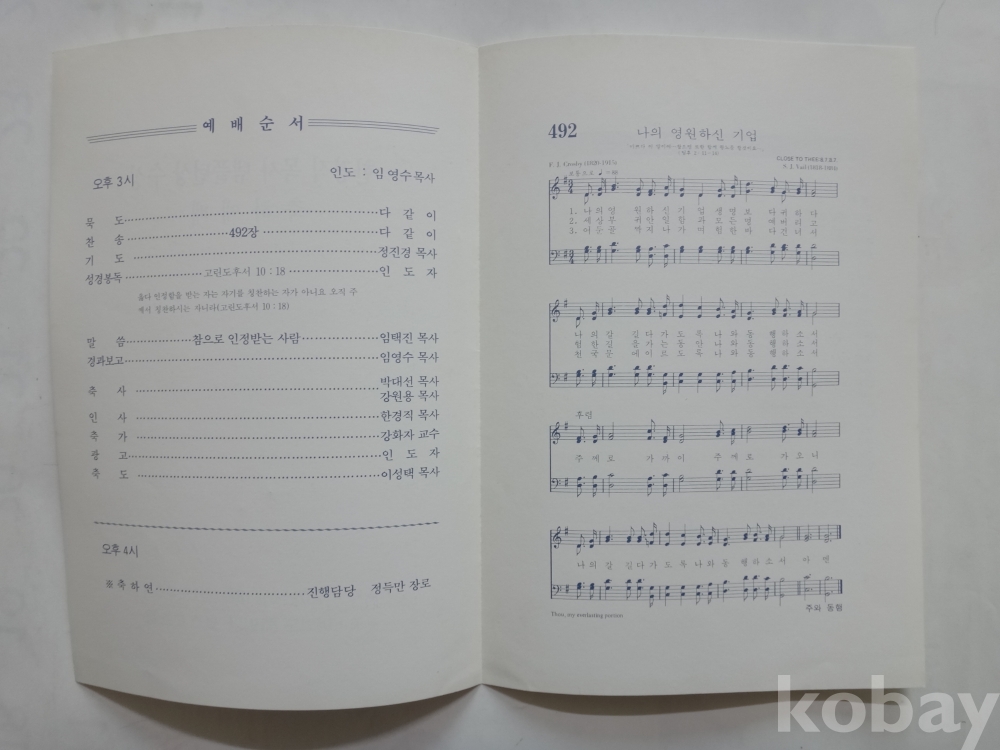 예 배 순 서
오후 3시 인도 : 임영수 목사
묵 도 다 같 이
찬 송 492장 다 같 이
기 도 정진경 목사
성경봉독 고린도후서 10 : 18 인 도 자
옳다 인정함을 받는 자는 자기를 칭찬하는 자가 아니요 오직 주
께서 칭찬하시는 자니라(고린도후서 10 : 18)
말 씀 참으로 인정받는 사람 임택진 목사
경과보고 임영수 목사
축 사 박대선 목사
강원용 목사
인 사 한경직 목사
축 가 강화자 교수
광 고 인 도 자
축 도 이성택 목사
오후 4시
※축 하 연 진행담당 정득만 장로
492 나의 영원하신 기업
F. J. Crosby (1820-1915)
CLOSE TO THEE
1. 나 의 영 원 하 신 기 업 생 명 보 다 귀 하 다
2. 세 상 부 귀 안 일 함 과 모 든 명 예 버 리 고
3. 어 둔 골 짝 지 나 가 며 험 한 바 다 건 너 서
나 의 갈 길 다 가 도 록 나 와 동 행 하 소 서
험 한 길 을 가 는 동 안 나 와 동 행 하 소 서
천 국 문 에 이 르 도 록 나 와 동 행 하 소 서
후렴
주 께 로 가 까 이 주 께 로 가 오 니
나 의 갈 길 다 가 도 록 나 와 동 행 하 소 서 아 멘
Thou, my everlasting portion
주와 동행
kobay